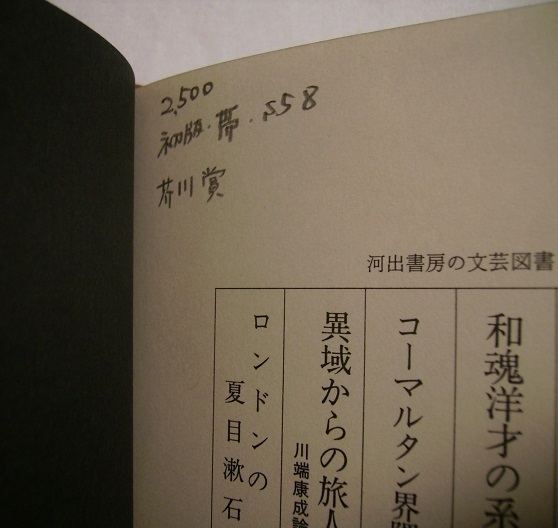 2,500
初版・帯・S58
芥川賞
河出書房の文芸図書
和魂洋才の系
コーマルタン界隈
異域からの旅人
川端康成論
ロンドンの
夏目漱石